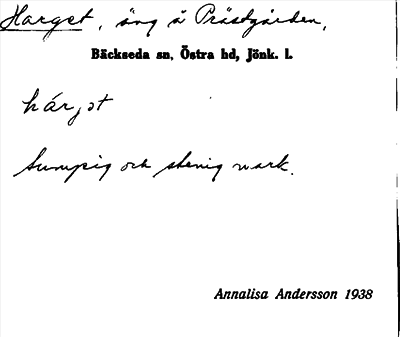 Harget, äng å Prästgården,
Bäckseda sn, Östra hd, Jönk. l.
hár̨ət
Sumpig och stenig mark.
Annalisa Andersson 1938